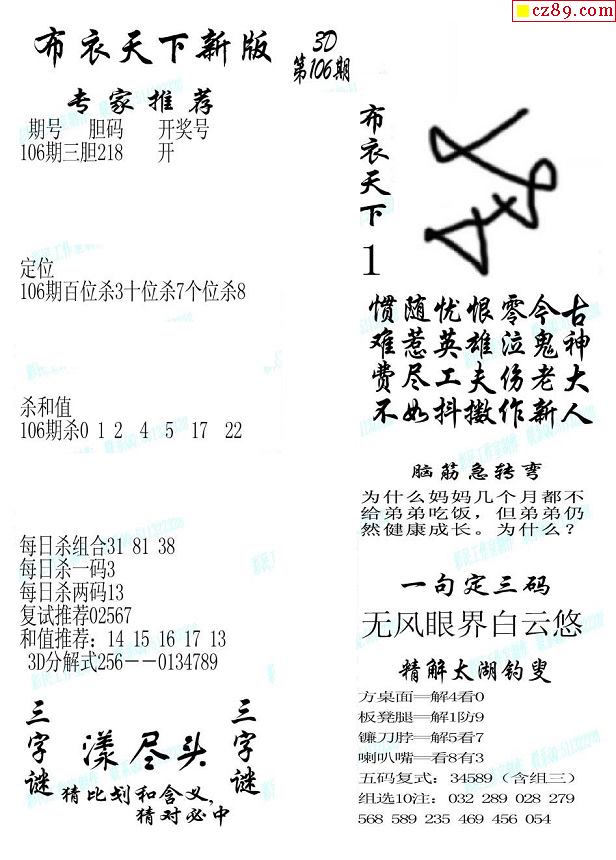 cz89.com
布衣天下新版
3D
第106期
专家推荐
期号 胆码 开奖号
106期三胆218 开
定位
106期百位杀3十位杀7个位杀8
杀和值
106期杀0 1 2 4 5 17 22
每日杀组合31 81 38
每日杀一码3
每日杀两码13
复试推荐02567
和值推荐：14 15 16 17 13
3D分解式256－－0134789
三字谜
漾尽头
三字谜
猜比划和含义,
猜对必中
布衣天下
1
惯随忧恨零今古
难惹英雄泣鬼神
费尽工夫伤老大
不如抖擞作新人
脑筋急转弯
为什么妈妈几个月都不
给弟弟吃饭，但弟弟仍
然健康成长。为什么？
一句定三码
无风眼界白云悠
精解太湖钓叟
方桌面═解4看0
板凳腿═解1防9
镰刀脖═解5看7
喇叭嘴═看8有3
五码复式：34589（含组三）
组选10注：032 289 028 279
568 589 235 469 456 054